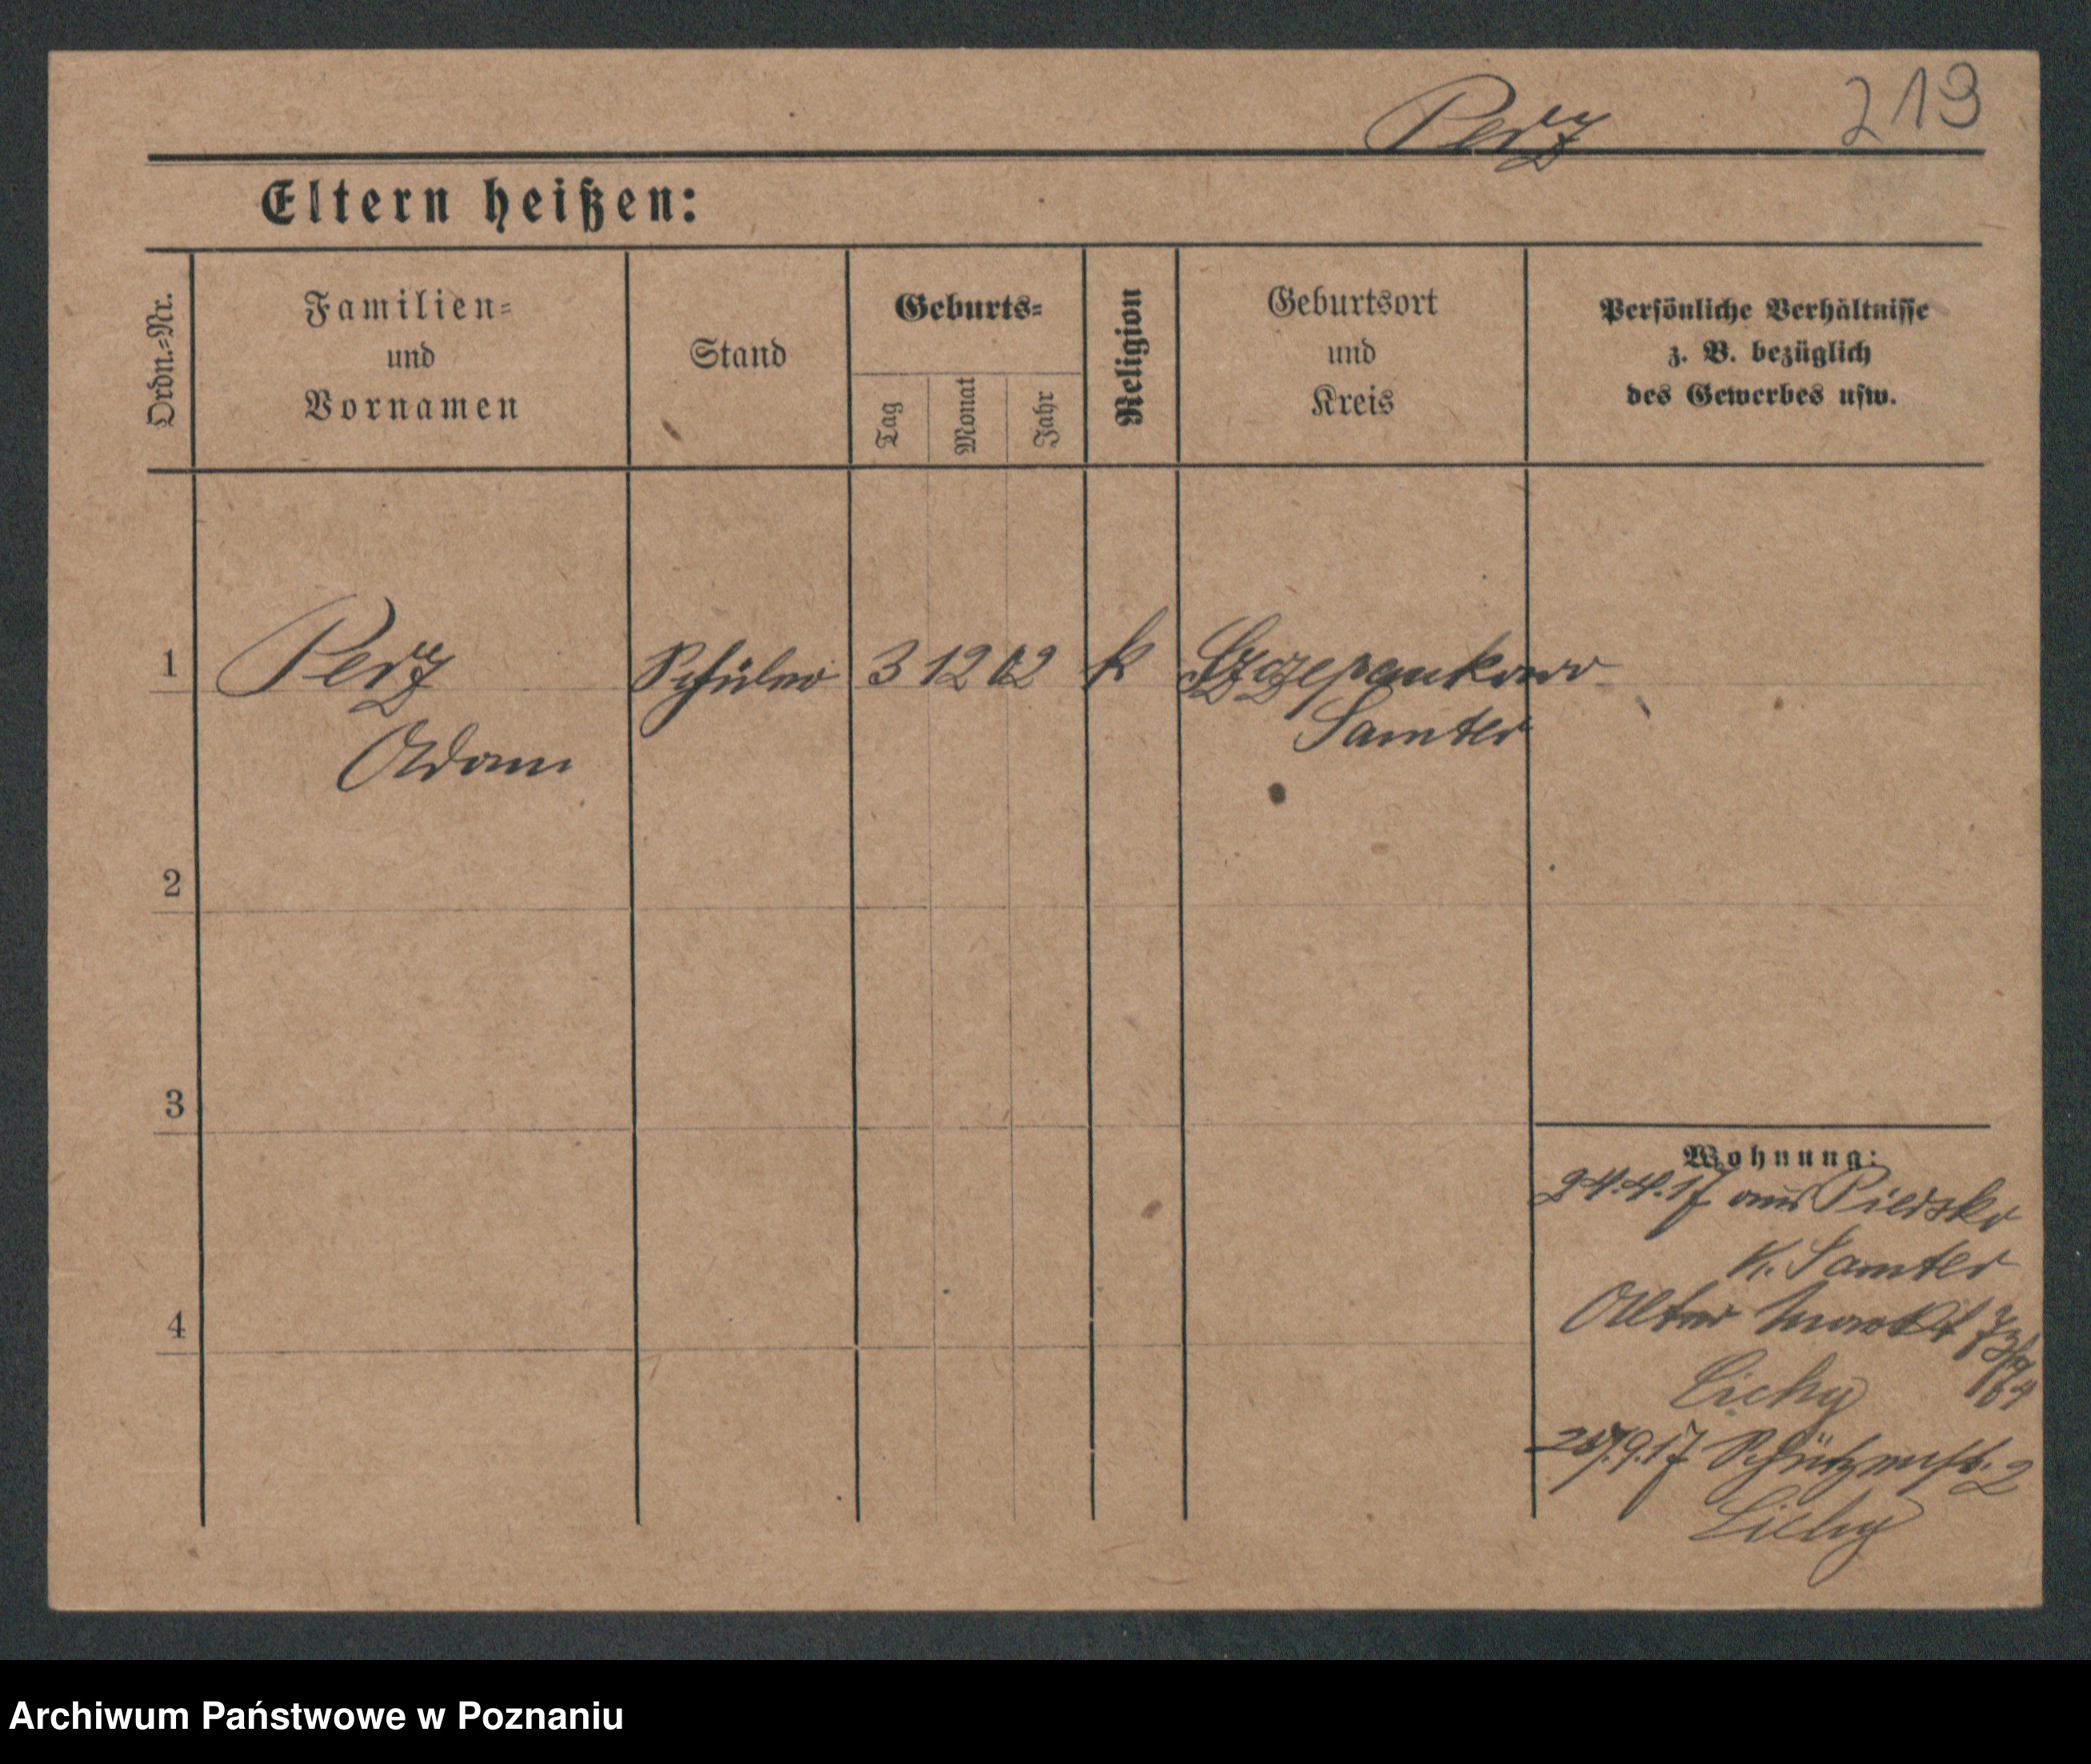 Perz 219
Eltern heißen:
Ordn.=Nr.
Familien=
und
Vornamen
Stand
Geburts=
Tag
Monat
Jahr
Religion
Geburtsort
und
Kreis
Persönliche Verhältnisse
z. B. bezüglich
des Gewerbes usw.
1 Perz Schüler 3 12 02 k Szczepankowo
Adam Samter
2
3
4
Wohnung:
24.4.17 aus Piersko
K. Samter
Alter Markt
Cichy
9.17 Schützenstr. 2
Cichy
Archiwum Państwowe w Poznaniu